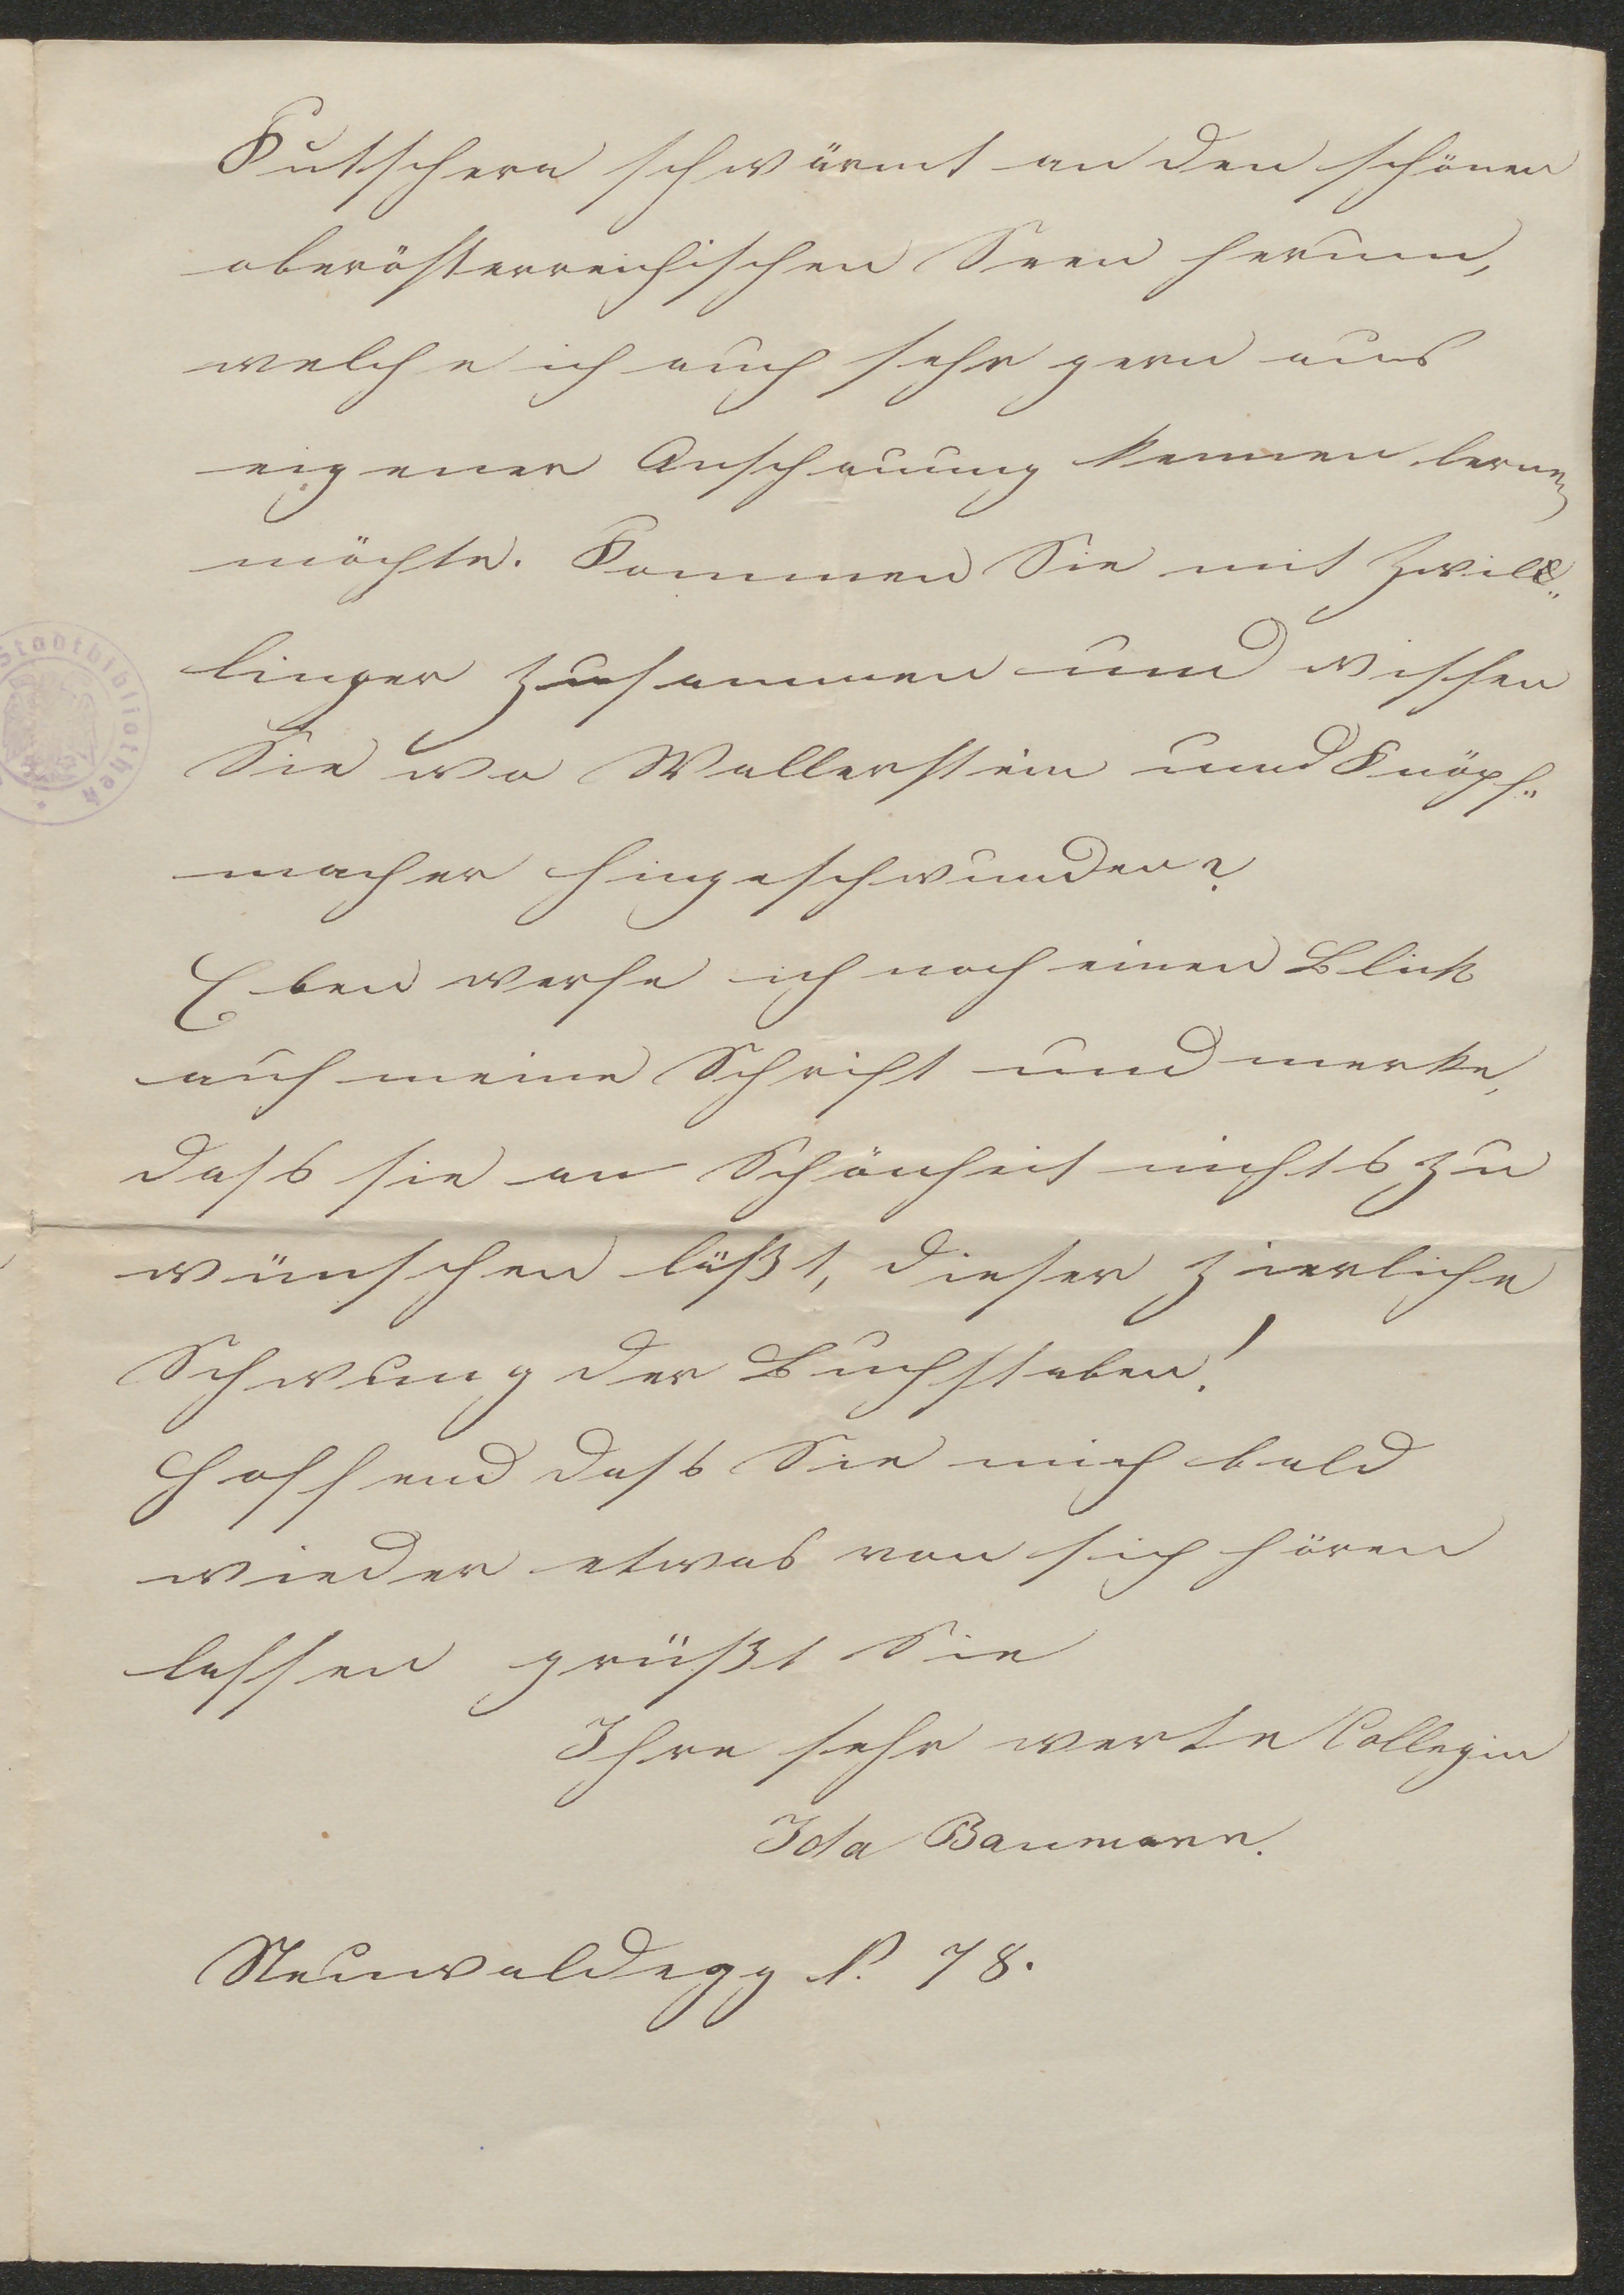 Kutschera schwärmt an den schönen
oberösterreichischen Seen herum,
welche ich auch sehr gern aus
eigener Anschauung kennen lernen
möchte. Kommen Sie mit Zwill-
linger zusammen und wissen
Sie wo Wallerstein und Knöpf-
macher hingeschwunden?
Eben werfe ich noch einen Blick
auf meine Schrift und merke,
dass sie an Schönheit nichts zu
wünschen läßt, dieser zierliche
Schwung der Buchstaben!
Hoffend dass Sie mich bald
wieder etwas von sich hören
lassen grüßt Sie
Ihre sehr werte Collegin
Ida Baumann.
Neuwaldegg N. 78.
Stadtbibliothek